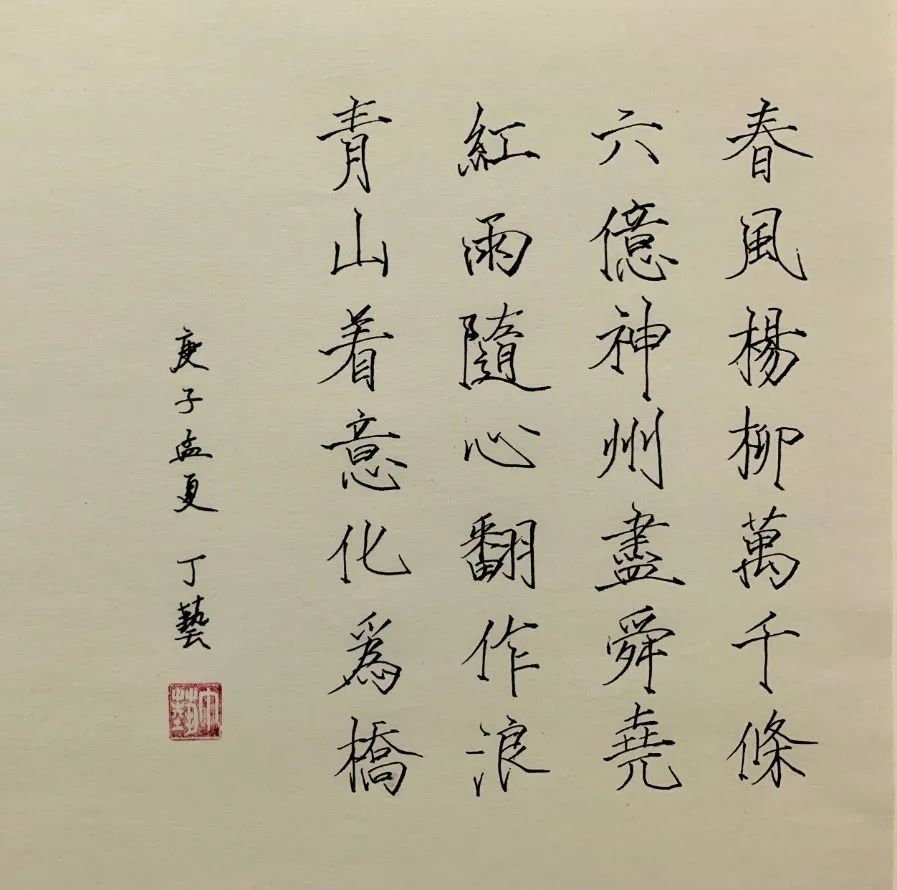 春風楊柳萬千條
六億神州盡舜堯
紅雨隨心翻作浪
青山着意化爲橋
庚子孟夏 丁藝